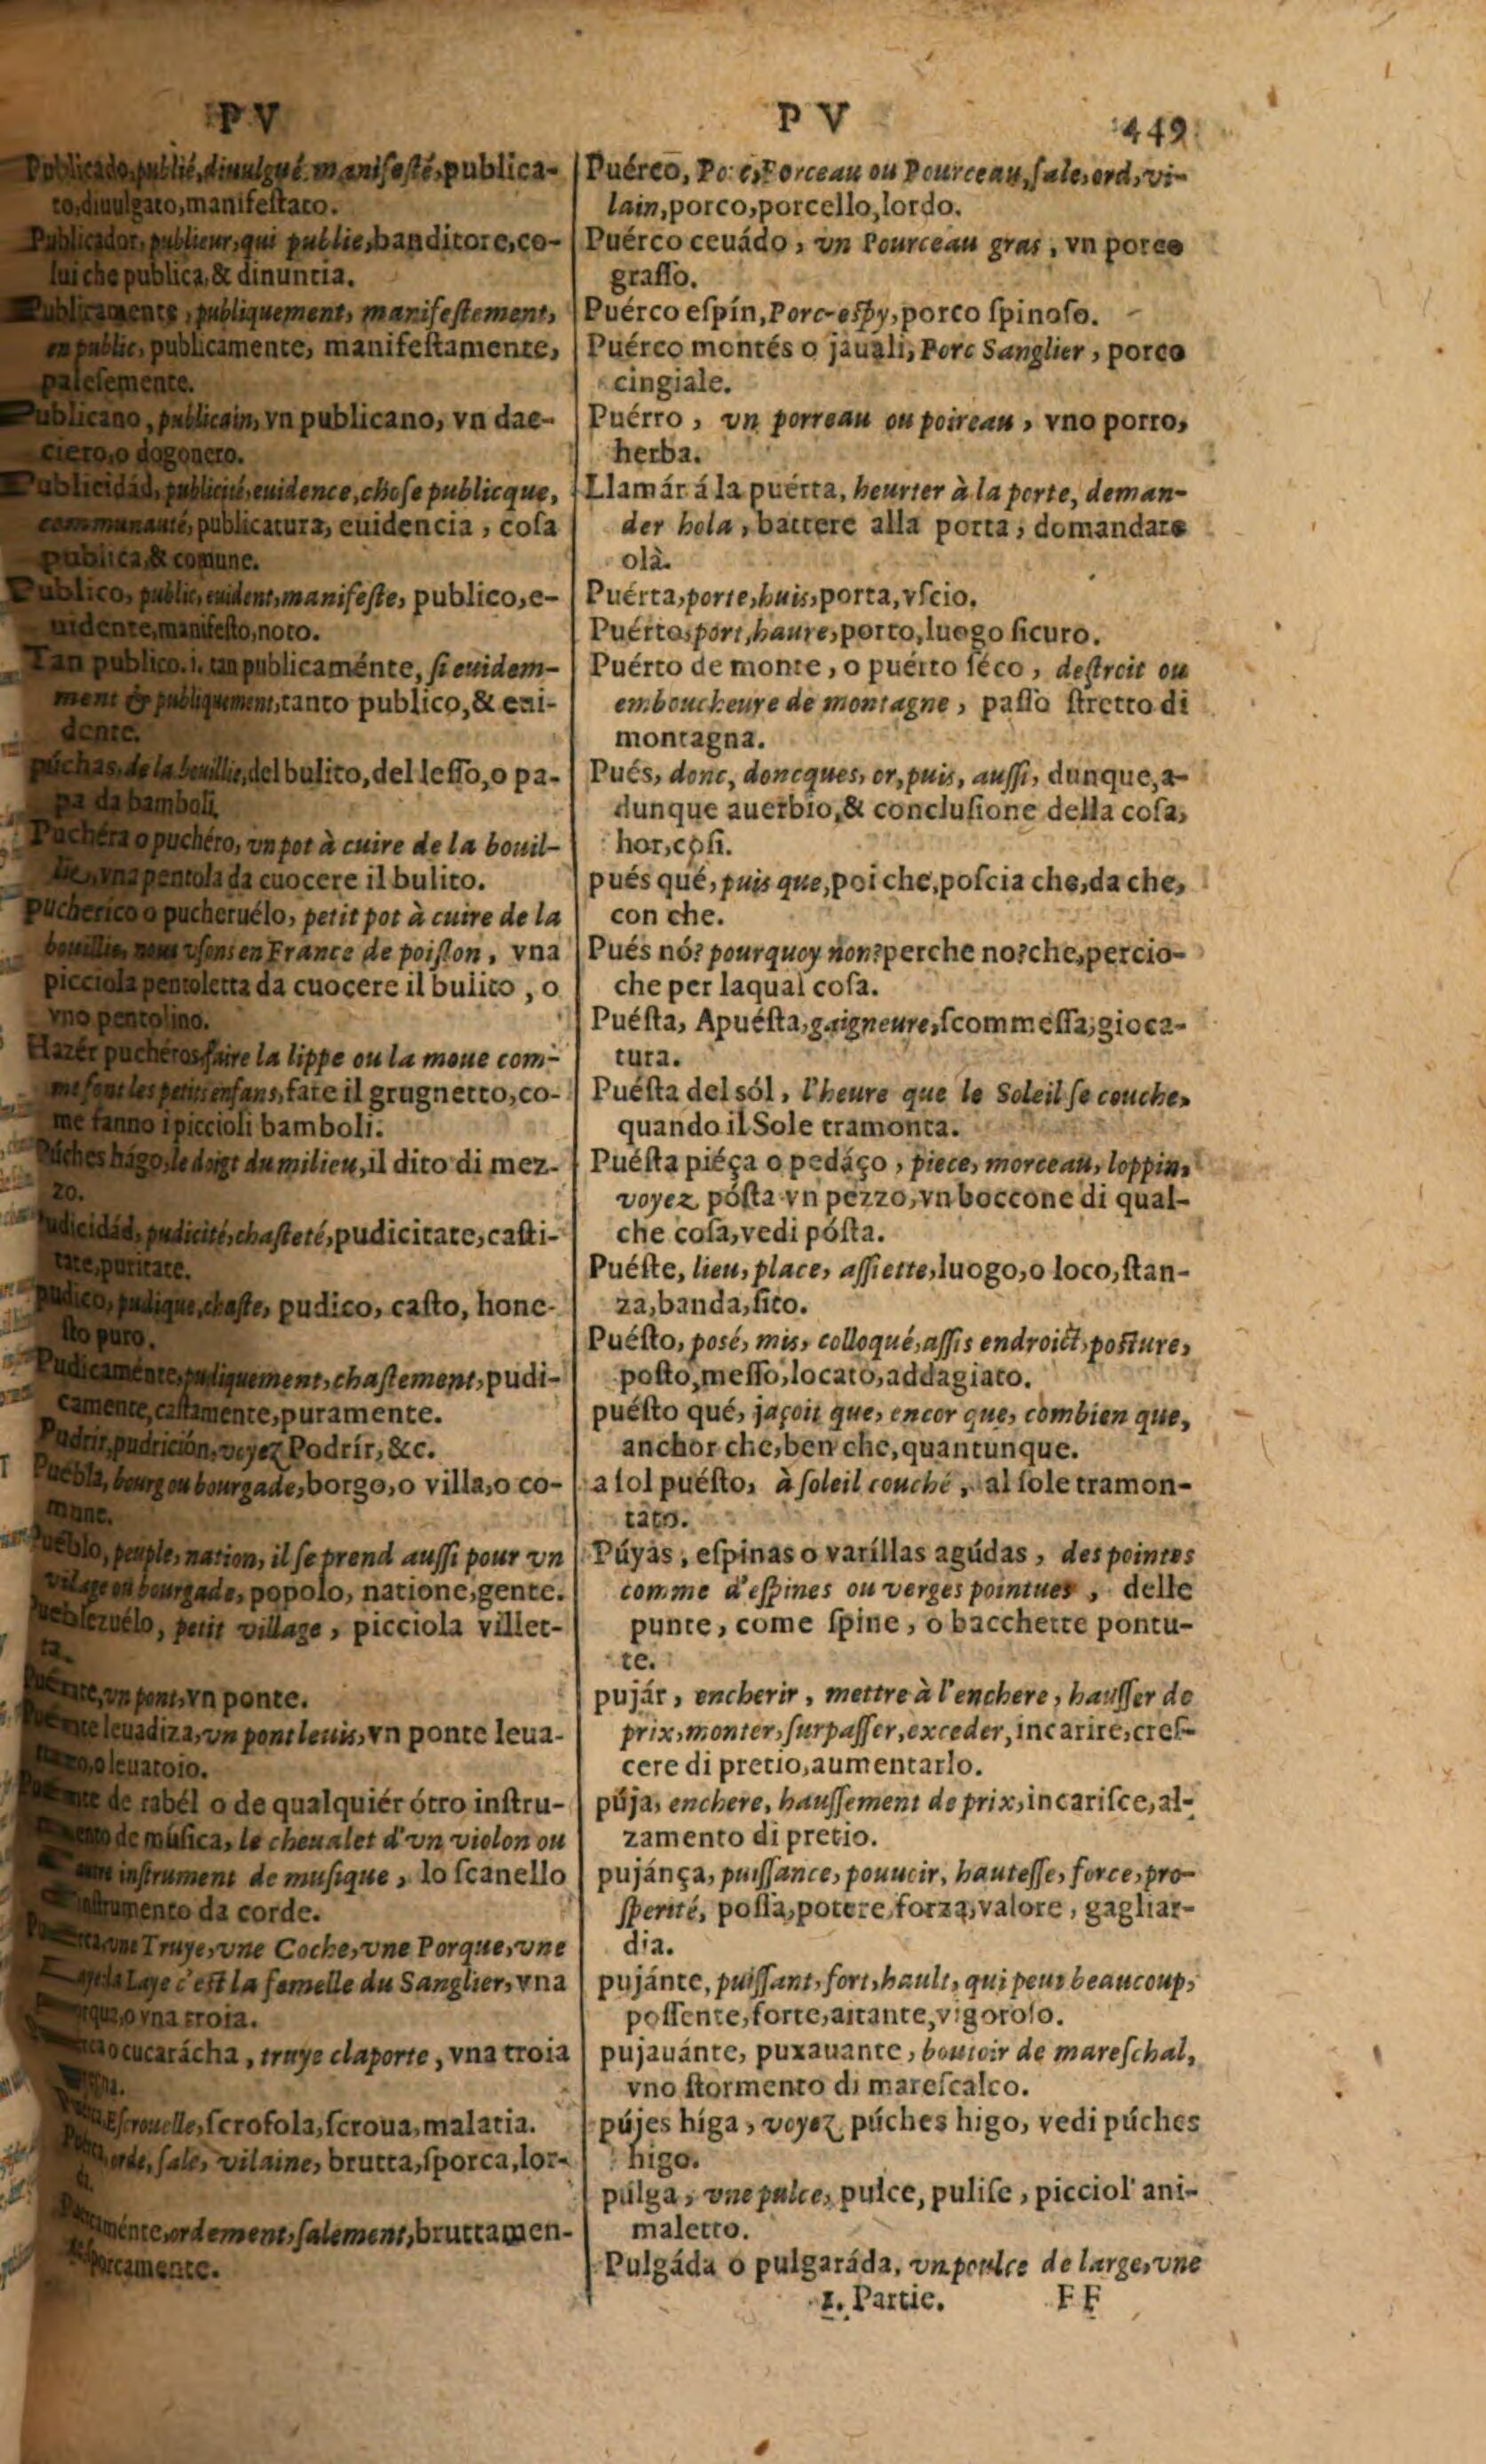 P V
Publicado, publié, diuulgué, manifesté, publica-
to, diuulgato, manifeſtato.
Publicador, publieur, qui publie, banditore, co-
lui che publica, & dinuncia.
Publicamente, publiquement, manifeſtement,
en public, publicamente, manifeſtamente,
paleſemente.
Publicano, publicain, vn publicano, vn dae-
ciero, o dogonero.
Publicidád, publicité, euidence, choſe publicque,
communauté, publicatura, euidencia, coſa
publica, & comune.
Publico, public, euident, manifeſte, publico, e-
uidente, manifeſto, noto.
Tan publico. i. tan publicaménte, ſi euidem-
ment & publiquement, tanto publico, & eui-
dente.
púchas, de la bouillie, del bulito, del leſſo, o pa-
pa da bamboli.
Puchéra o puchéro, vn pot à cuire de la bouil-
lie, vna pentola da cuocere il bulito.
pucherico o pucheruélo, petit pot à cuire de la
bouillie, nous vſons en France de poiſlon, vna
picciola pentoletta da cuocere il bulito, o
vno pentolino.
Hazér puchéros, faire la lippe ou la moue com-
me font les petits enfans, fare il grugnetto, co-
me fanno i piccioli bamboli.
Púches hígo, le doigt du milieu, il dito di mez-
zo.
Pudicidád, pudicité, chaſteté, pudicitate, caſti-
tate, puritate.
pudico, pudique, chaſte, pudico, caſto, hone-
ſto puro.
Pudicaménte, pudiquement, chaſtement, pudi-
camente, caſtamente, puramente.
Pudrir, pudrición, voyez Podrír, &c.
Puébla, bourg ou bourgade, borgo, o villa, o co-
mune.
Puéblo, peuple, nation, il ſe prend auſſi pour vn
vilage ou bourgade, popolo, natione, gente.
Pueblezuélo, petit village, picciola villet-
ta.
Puénte, vn pont, vn ponte.
Puénte leuadiza, vn pont leuis, vn ponte leua-
o leuatoio.
Puénte de rabél o de qualquiér ótro inſtru-
mento de múſica, le cheualet d'vn violon ou
autre inſtrument de muſique, lo ſcanello
d'inſtrumento da corde.
vne Truye, vne Coche, vne Porque, vne
Laye c'eſt la femelle du Sanglier, vna
o vna troia.
o cucarácha, truye claporte, vna troia
Eſcrouelle, ſcrofola, ſcroua, malatia.
orde, ſale, vilaine, brutta, ſporca, lor-
ordement, ſalement, bruttamen-
ſporcamente.
P V 449
Puérco, Porc, Porceau ou Pourceau, ſale, ord, vi-
lain, porco, porcello, lordo.
Puérco ceuádo, vn Pourceau gras, vn porco
graſſo.
Puérco eſpín, Porc-eſpy, porco ſpinoſo.
Puérco montés o jauali, Porc Sanglier, porco
cingiale.
Puérro, vn porreau ou poireau, vno porro,
herba.
Llamár á la puérta, heurter à la porte, deman-
der hola, battere alla porta, domandare
olà.
Puérta, porte, huis, porta, vſcio.
Puérto, port, haure, porto, luogo ſicuro.
Puérto de monte, o puérto ſéco, deſtroit ou
emboucheure de montagne, paſſo ſtretto di
montagna.
Pués, donc, doncques, or, puis, auſſi, dunque, a-
dunque auerbio, & concluſione della coſa,
hor, coſi.
pués qué, puis que, poi che, poſcia che, da che,
con che.
Pués nó? pourquoy non? perche no? che, percio-
che per laqual coſa.
Puéſta, Apuéſta, gaigneure, ſcommeſſa, gioca-
tura.
Puéſta del ſól, l'heure que le Soleil ſe couche,
quando il Sole tramonta.
Puéſta piéça o pedáço, piece, morceau, loppin,
voyez póſta vn pezzo, vn boccone di qual-
che coſa, vedi póſta.
Puéſte, lieu, place, aſſiette, luogo, o loco, ſtan-
za, banda, ſito.
Puéſto, poſé, mis, colloqué, aſſis endroict, poſture,
poſto, meſſo, locato, addagiato.
puéſto qué, jaçoit que, encor que, combien que,
anchor che, ben che, quantunque.
a ſol puéſto, à ſoleil couché, al ſole tramon-
tato.
Púyas, eſpinas o varíllas agúdas, des pointes
comme d'eſpines ou verges pointues, delle
punte, come ſpine, o bacchette pontu-
te.
pujár, encherir, mettre à l'enchere, hauſſer de
prix, monter, ſurpaſſer, exceder, incarire, creſ-
cere di pretio, aumentarlo.
púja, enchere, hauſſement de prix, incariſce, al-
zamento di pretio.
pujánça, puiſſance, pouuoir, hauteſſe, force, pro-
ſperité, poſſa, potere, forza, valore, gagliar-
dia.
pujánte, puiſſant, fort, hault, qui peut beaucoup,
poſſente, forte, aitante, vigoroſo.
pujauánte, puxauante, boutoir de mareſchal,
vno ſtormento di mareſcalco.
pújes híga, voyez púches higo, vedi púches
higo.
púlga, vne pulce, pulce, puliſe, picciol' ani-
maletto.
Pulgáda o pulgaráda, vn poulce de large, vne
1. Partie. F F